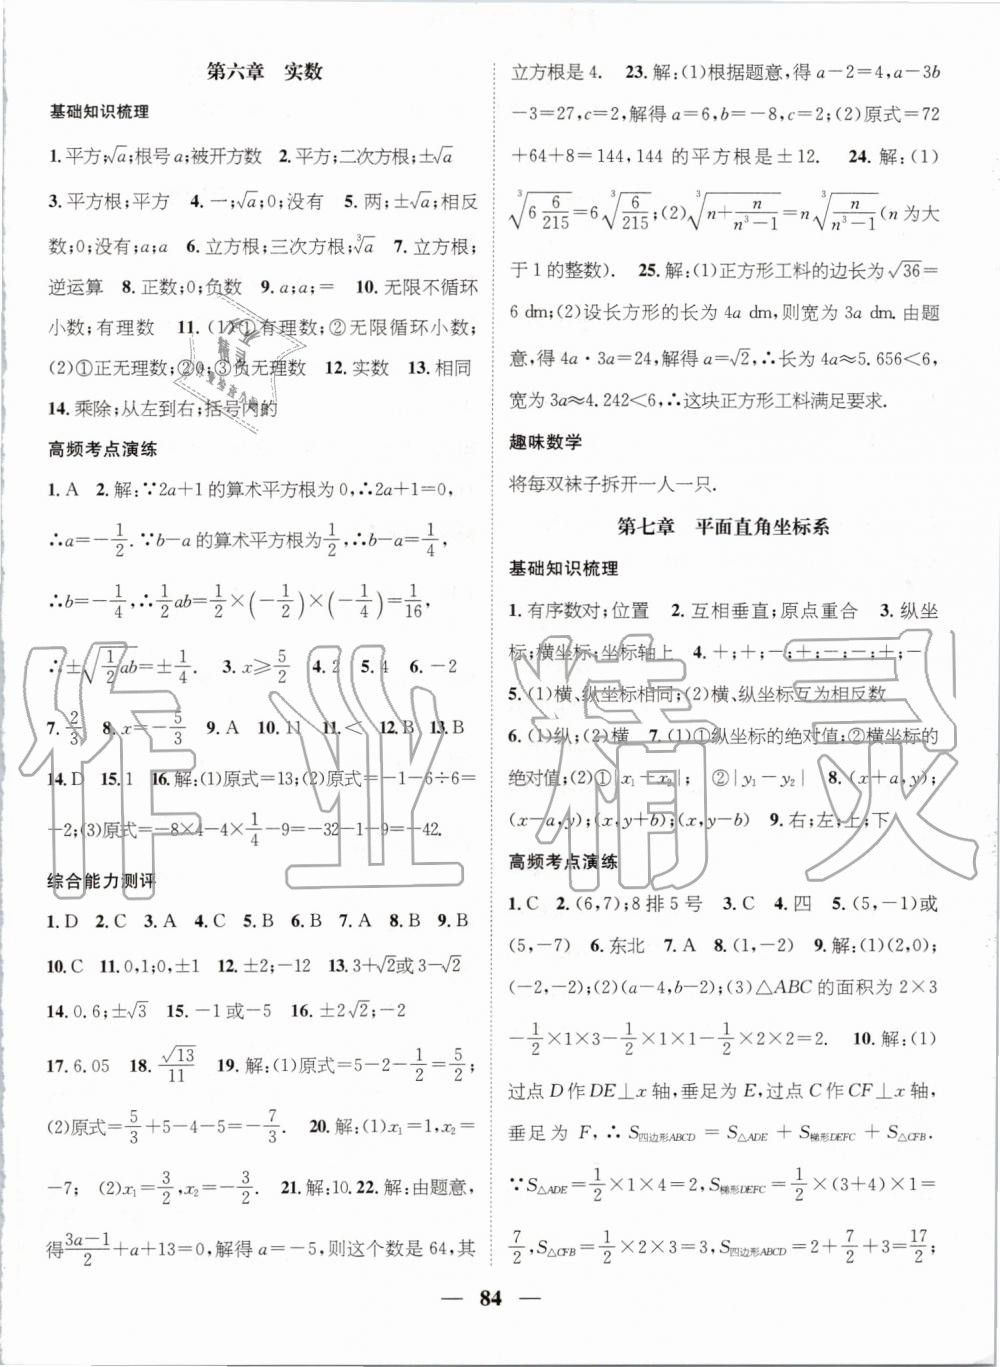 第六章 实数
基础知识梳理
1. 平方;√a;根号 a;被开方数 2. 平方;二次方根;±√a
3. 平方根;平方 4. 一;√a;0;没有 5. 两;±√a;相反
数;0;没有;a;a 6. 立方根;三次方根;∛a 7. 立方根;
逆运算 8. 正数;0;负数 9. a;a;= 10. 无限不循环
小数;有理数 11. (1)①有理数;②无限循环小数;
(2)①正无理数;②0;③负无理数 12. 实数 13. 相同
14. 乘除;从左到右;括号内的
高频考点演练
1. A 2. 解:∵2a+1 的算术平方根为 0,∴2a+1=0,
∴a=-1/2. ∵b-a 的算术平方根为1/2,∴b-a=1/4,
∴b=-1/4,∴1/2ab=1/2×(-1/2)×(-1/4)=1/16,
∴±√(1/2ab)=±1/4. 3. x≥5/2 4. 2 5. 4 6. -2
7. 2/3 8. x=-5/3 9. A 10. 11 11. < 12. B 13. B
14. D 15. 1 16. 解:(1)原式=13;(2)原式=-1-6÷6=
-2;(3)原式=-8×4-4×1/4-9=-32-1-9=-42.
综合能力测评
1. D 2. C 3. A 4. C 5. B 6. B 7. A 8. B 9. B
10. C 11. 0,1;0,±1 12. ±2;-12 13. 3+√2或3-√2
14. 0.6;±√3 15. -1或-5 16. √2;-2
17. 6.05 18. √13/11 19. 解:(1)原式=5-2-1/2=5/2;
(2)原式=5/3+5-4-5=-7/3. 20. 解:(1)x₁=1,x₂=
-7; (2)x₁=3/2,x₂=-3/2. 21. 解:10. 22. 解:由题意,
得(3a-1)/2+a+13=0,解得 a=-5,则这个数是 64,其
立方根是 4. 23. 解:(1)根据题意,得 a-2=4,a-3b
-3=27,c=2,解得 a=6,b=-8,c=2;(2)原式=72
+64+8=144,144 的平方根是±12. 24. 解:(1)
∛(6 6/215)=6∛(6/215);(2)∛(n+n/(n³-1))=n∛(n/(n³-1))(n 为大
于 1 的整数). 25. 解:(1)正方形工料的边长为√36=
6 dm;(2)设长方形的长为 4a dm,则宽为 3a dm. 由题
意,得 4a·3a=24,解得 a=√2,∴长为 4a≈5.656<6,
宽为 3a≈4.242<6,∴这块正方形工料满足要求.
趣味数学
将每双袜子拆开一人一只.
第七章 平面直角坐标系
基础知识梳理
1. 有序数对;位置 2. 互相垂直;原点重合 3. 纵坐
标;横坐标;坐标轴上 4. +;+;-;+;-;-;+;-
5. (1)横、纵坐标相同;(2)横、纵坐标互为相反数
6. (1)纵;(2)横 7. (1)①纵坐标的绝对值;②横坐标的
绝对值;(2)①|x₁-x₂|; ②|y₁-y₂| 8. (x+a,y);
(x-a,y);(x,y+b);(x,y-b) 9. 右;左;上;下
高频考点演练
1. C 2. (6,7);8 排 5 号 3. C 4. 四 5. (5,-1)或
(5,-7) 6. 东北 7. A 8. (1,-2) 9. 解:(1)(2,0);
(-2,-2);(2)(a-4,b-2);(3)△ABC 的面积为 2×3
-1/2×1×3-1/2×1×1-1/2×2×2=2. 10. 解:(1)
过点 D 作 DE⊥x 轴,垂足为 E,过点 C 作 CF⊥x 轴,
垂足为 F,∴S四边形ABCD=S△ADE+S梯形DEFC+S△CFB.
∵S△ADE=1/2×1×4=2,S梯形DEFC=1/2×(3+4)×1=
7/2,S△CFB=1/2×2×3=3,S四边形ABCD=2+7/2+3=17/2;
— 84 —
作业精灵